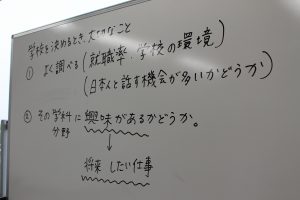 学校を決めるとき、大切なこと
① よく調べる(就職率・学校の環境)
(日本人と話す機会が多いかどうか)
② その学科に興味があるかどうか。
分野
↓
将来 したい仕事